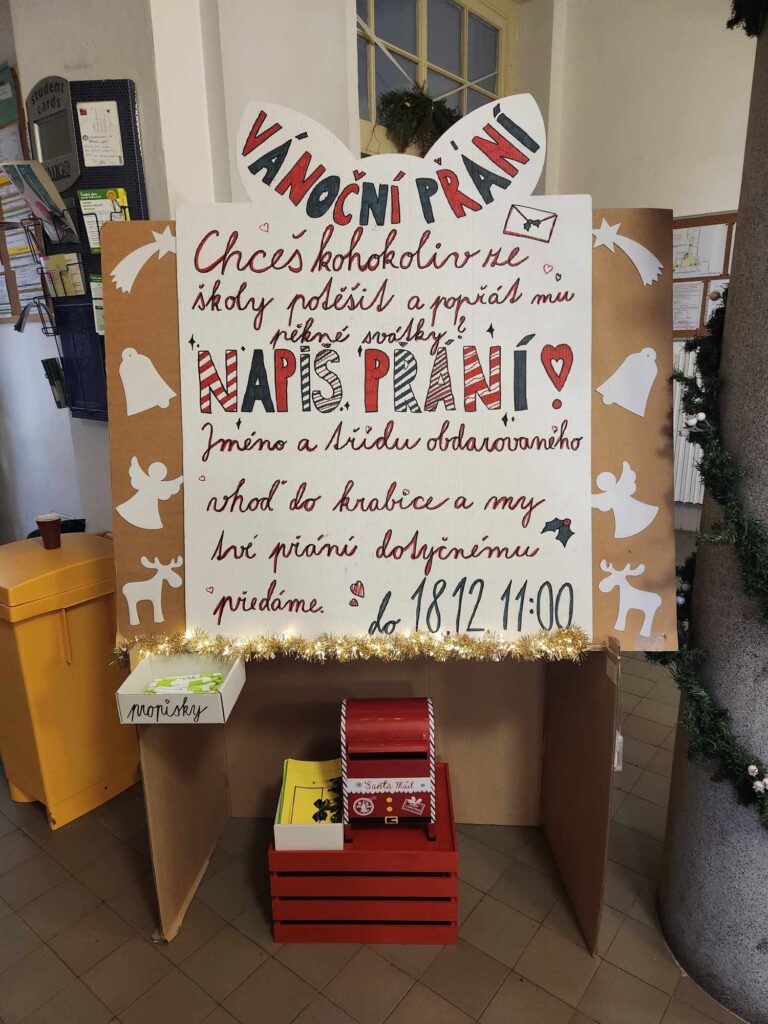 student cards
VÁNOČNÍ PŘÁNÍ
Chceš kohokoliv ze
školy potěšit a popřát mu
pěkné svátky?
NAPIŠ PŘÁNÍ!
Jméno a třídu obdarovaného
vhoď do krabice a my
tvé přání dotyčnému
předáme.
do 18.12. 11:00
propisky
Santa Mail